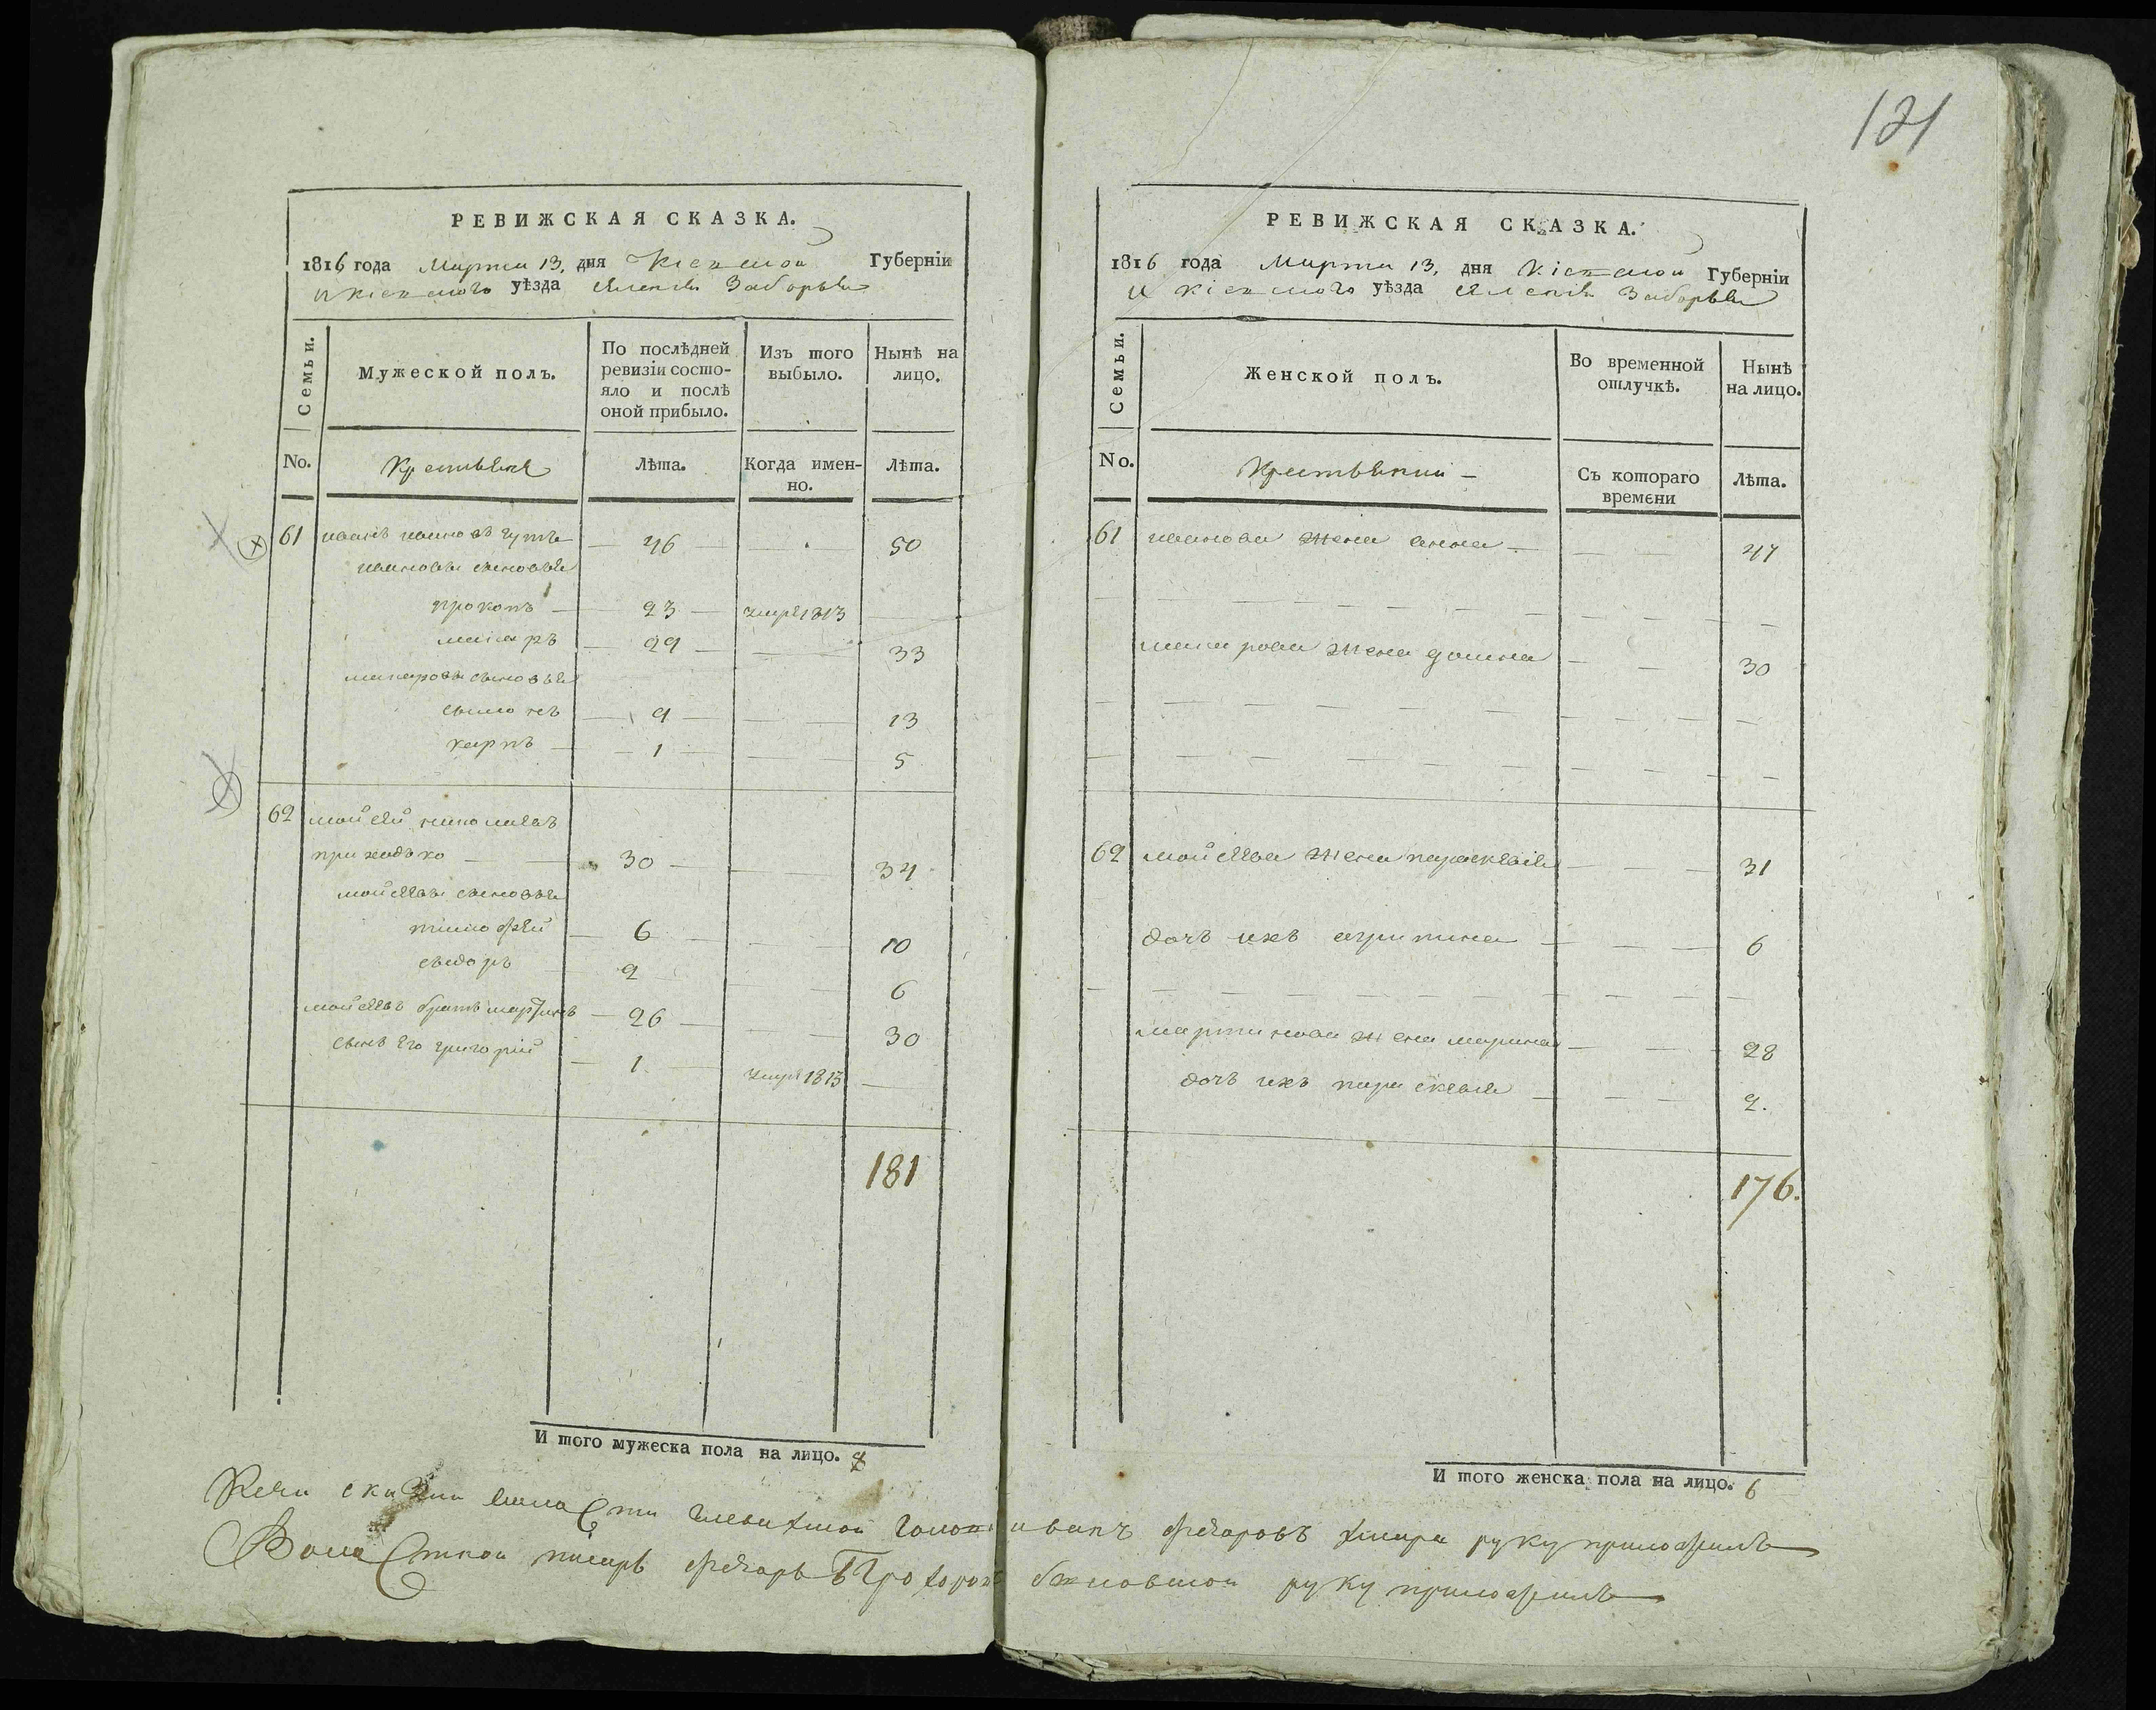 121
РЕВИЖСКАЯ СКАЗКА.
1816 года Марта 13, дня Кіевской Губерніи
и кіевского уѣзда Заборья
Семьи.
Мужеской полъ.
По послѣдней ревизіи состояло и послѣ оной прибыло.
Изъ того выбыло.
Нынѣ на лицо.
No.
Крестьяне
Лѣта.
Когда именно.
Лѣта.
61 иванъ ивановъ гутъ — 46 — 50
ивановы сыновья
прокопъ — 23 — умре 1813
макаръ — 29 — 33
макаровы сыновья
сымонъ — 9 — 13
карпъ — 1 — 5
62 мойсей николаевъ
приходько — 30 — 34
мойсеевы сыновья
тимофей — 6 — 10
сыдоръ 2 — 6
мойсеевъ братъ мартинъ — 26 — 30
сынъ его григорій — 1 умре 1813 —
181
И того мужеска пола на лицо. 8
РЕВИЖСКАЯ СКАЗКА.
1816 года Марта 13, дня Кіевской Губерніи
и кіевского уѣзда Заборья
Семьи.
Женской полъ.
Во временной отлучкѣ.
Нынѣ на лицо.
No.
Крестьянки —
Съ котораго времени
Лѣта.
61 иванова жена анна — 47
макарова жена домна — 30
62 мойсеева жена параскевія — 31
дочь ихъ агрипина — 6
мартинова жена марина — 28
дочь ихъ параскевія — 2.
176.
И того женска пола на лицо. 6
сказки иванъ федоровъ руку приложилъ
Волостной писарь федоръ руку приложилъ